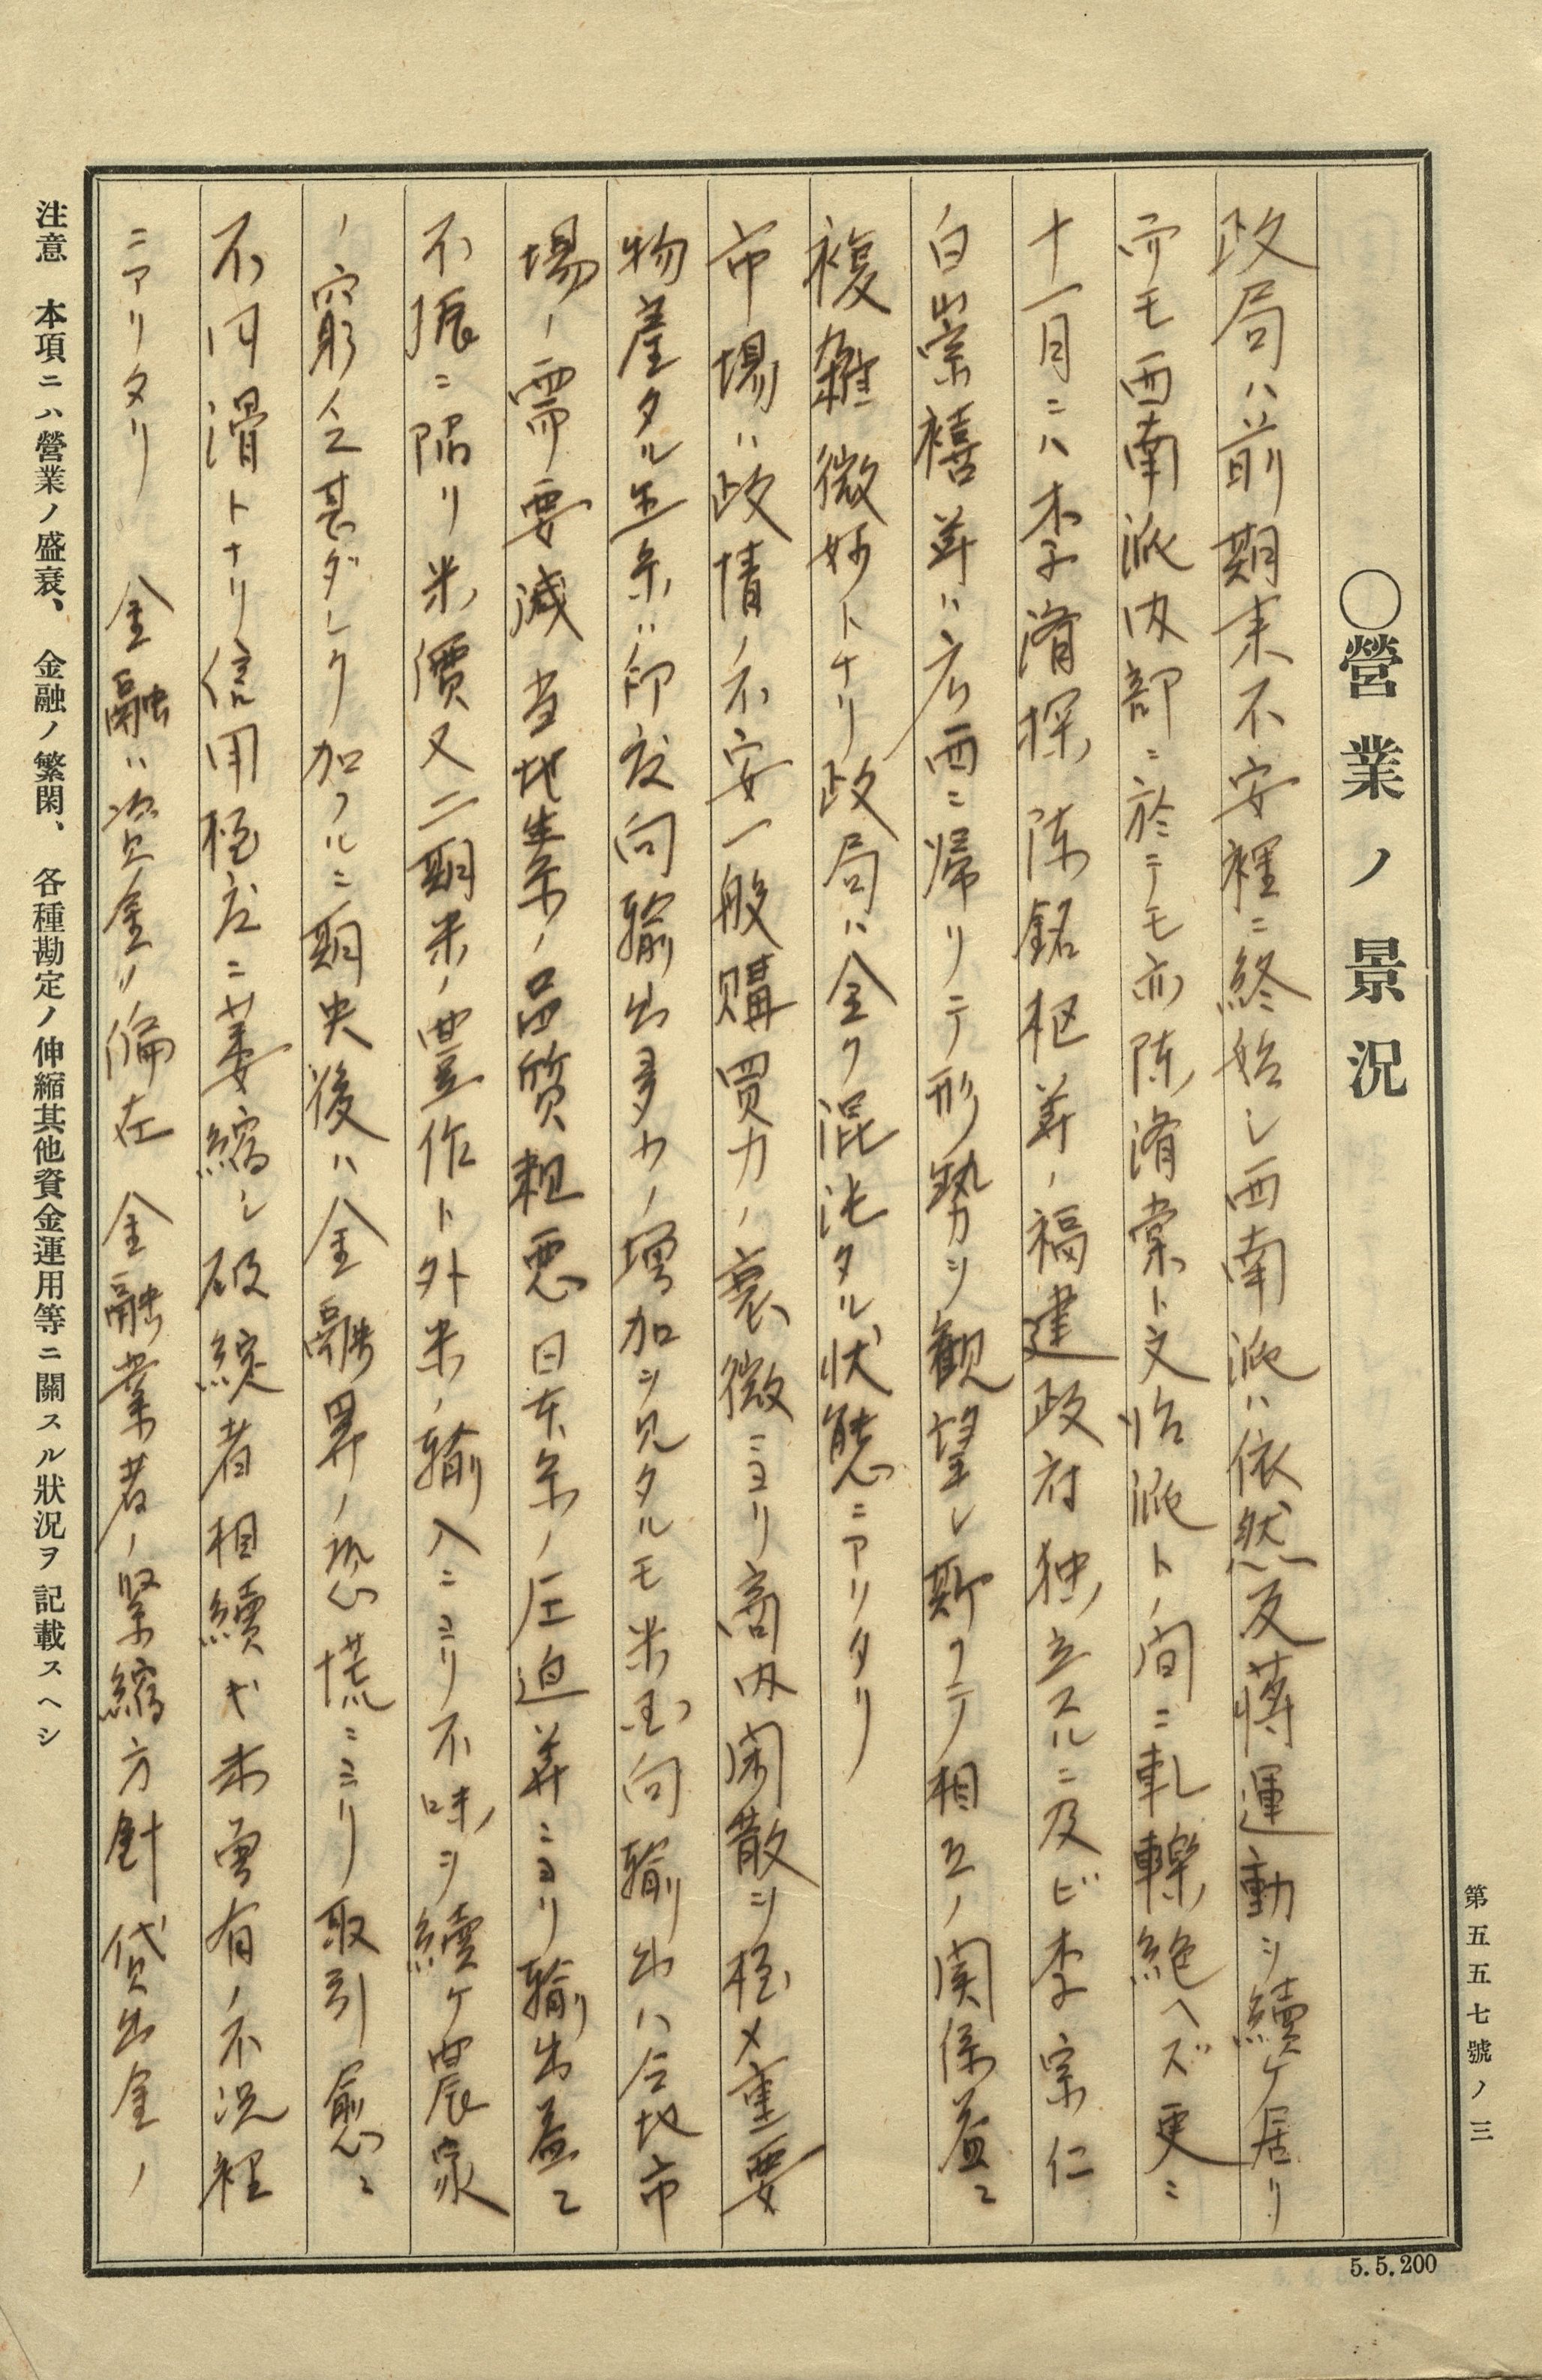 第五五七號ノ三
◯營業ノ景況
政局ハ前期末不安裡ニ終始シ西南派ハ依然反蔣運動ヲ續ケ居リ
而モ西南派内部ニ於テモ亦陳濟棠ト文治派トノ間ニ軋轢絶ヘズ更ニ
十一月ニハ李濟探陳銘枢等ノ福建政府独立スルニ及ビ李宗仁
白崇禧等ハ広西ニ帰リテ形勢ヲ観望シ斯クテ相互ノ関係益々
複雑微妙トナリ政局ハ全ク混沌タル状態ニアリタリ
市場ハ政情ノ不安一般購買力ノ衰微ニヨリ商内閑散ヲ極メ重要
物産タル生糸ハ印度向輸出多少ノ増加ヲ見タルモ米国向輸出ハ仝地市
場ノ需要減当地生糸ノ品質粗悪日本糸ノ圧迫等ニヨリ輸出益々
不振ニ陥リ米價又二期米ノ豊作ト外米ノ輸入ニヨリ不味ヲ續ケ農家
ノ窮乏甚ダシク加フルニ期央後ハ金融界ノ恐慌ニヨリ取引愈々
不円滑トナリ信用極度ニ萎縮シ破綻者相續ギ未曽有ノ不況裡
ニアリタリ　金融ハ資金ノ偏在　金融業者ノ緊縮方針　貸出金ノ
注意　本項ニハ營業ノ盛衰、金融ノ繁閑、各種勘定ノ伸縮其他資金運用等ニ關スル狀況ヲ記載スヘシ
5.5.200